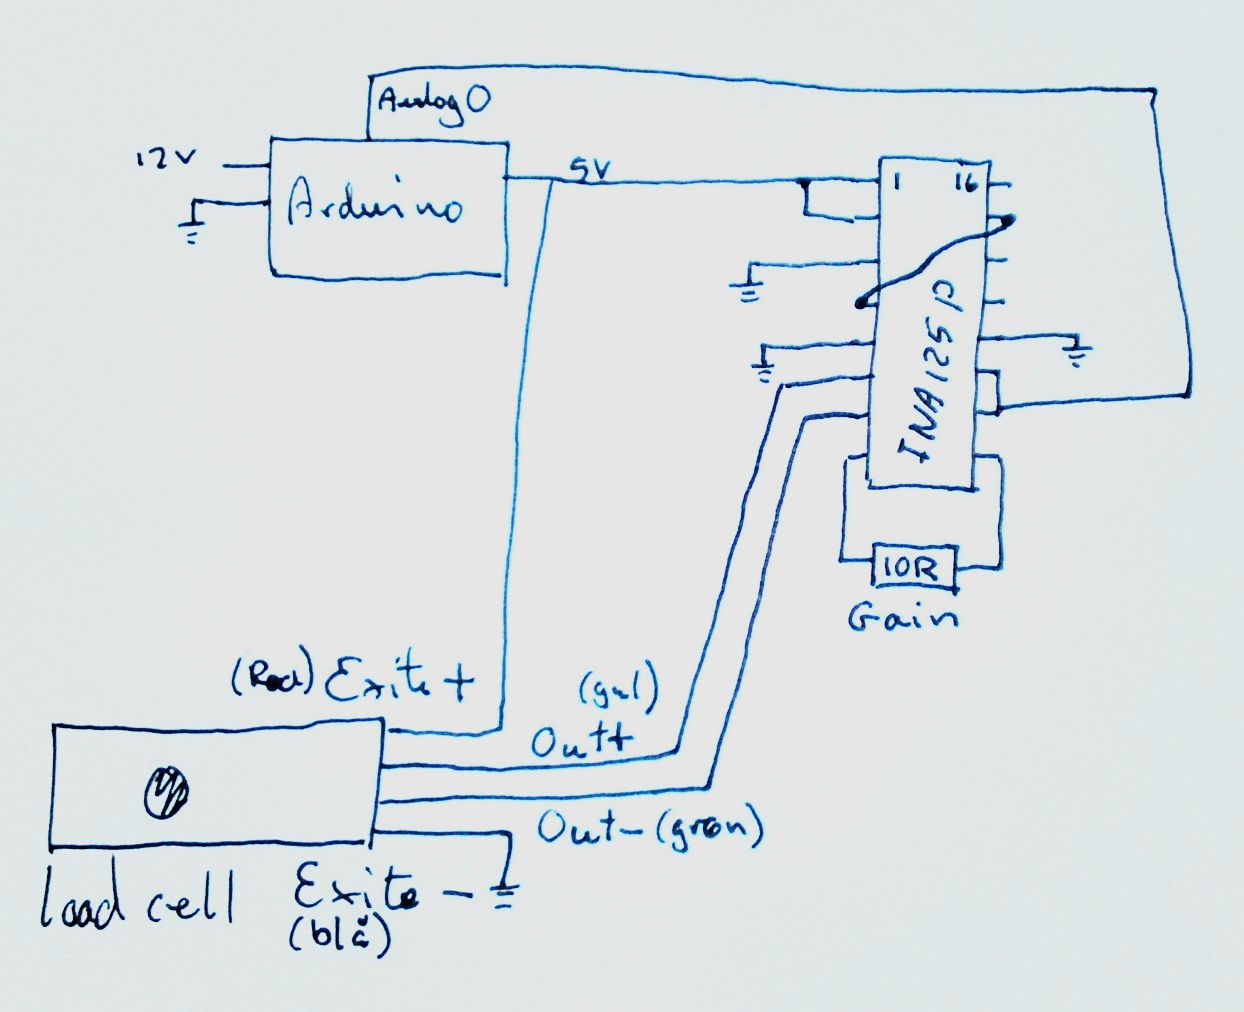 Analog 0
12V
Arduino
5V
1 16
INA125P
10R
Gain
(Rød) Exite +
(gul)
Out+
Out- (grøn)
Load cell
Exite -
(blå)